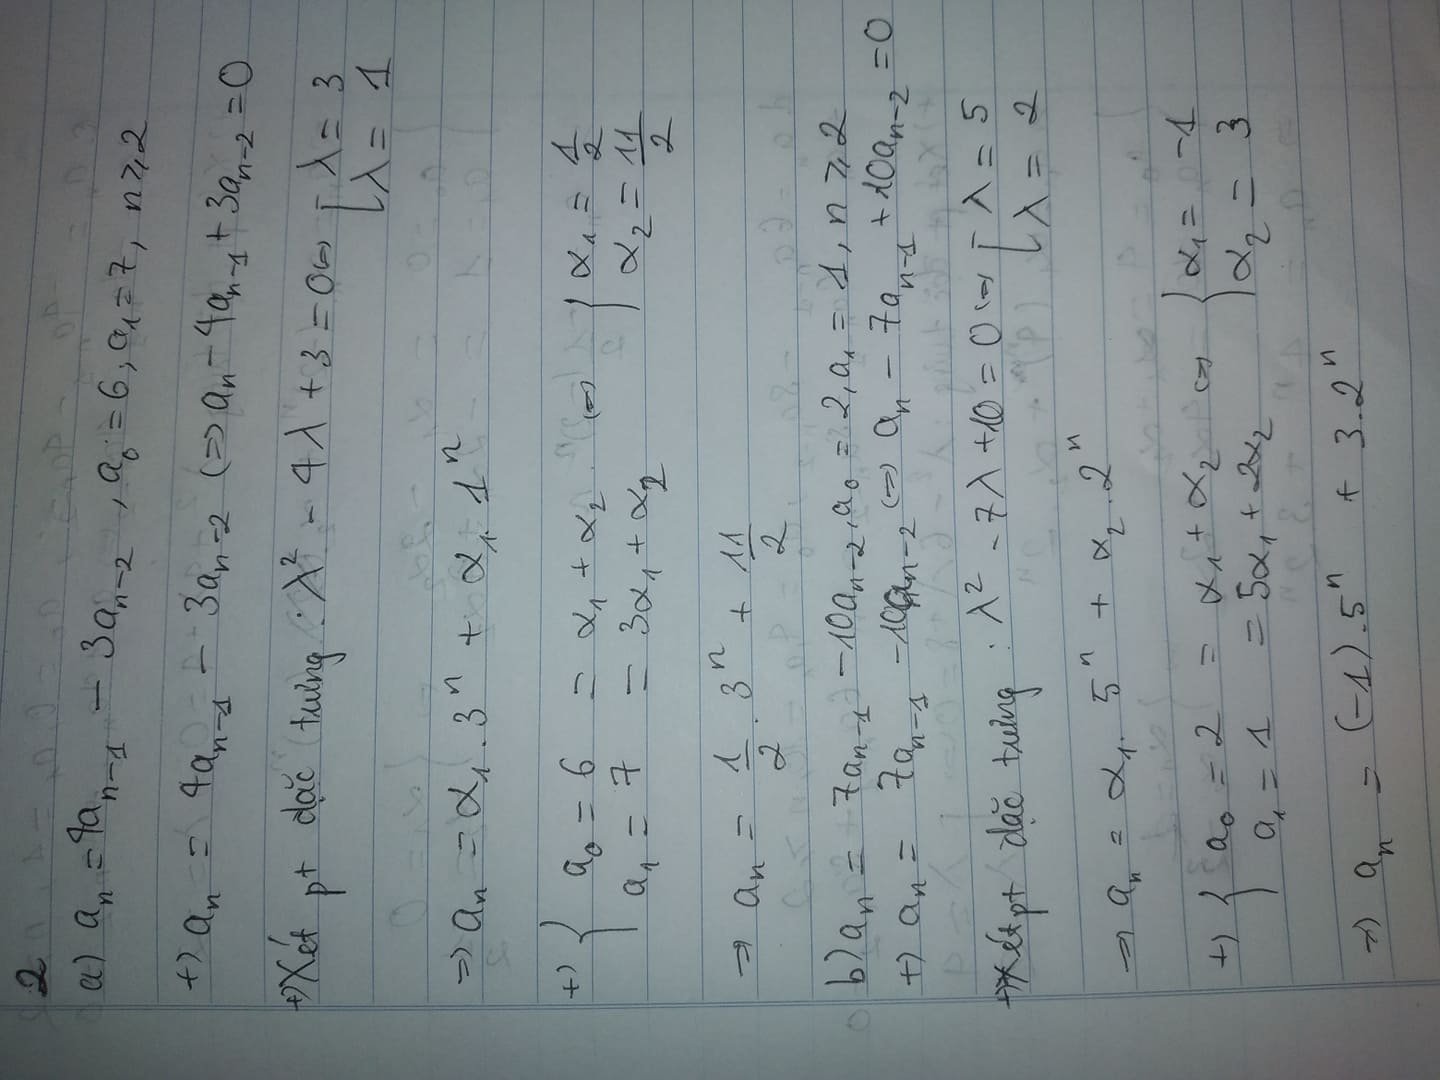 2
a) aₙ = 4aₙ₋₁ − 3aₙ₋₂ , a₀ = 6, a₁ = 7, n ⩾ 2
+) aₙ = 4aₙ₋₁ − 3aₙ₋₂ (=) aₙ − 4aₙ₋₁ + 3aₙ₋₂ = 0
+) Xét pt đặc trưng: λ² - 4λ + 3 = 0 (=) [ λ = 3
[ λ = 1
=) aₙ = α₁. 3ⁿ + α₁. 1ⁿ
+) { a₀ = 6 = α₁ + α₂ (=) { α₁ = 1/2
a₁ = 7 = 3α₁ + α₂ α₂ = 11/2
=) aₙ = 1/2 . 3ⁿ + 11/2
b) aₙ = 7aₙ₋₁ − 10aₙ₋₂, a₀ = 2, a₁ = 1, n ⩾ 2
+) aₙ = 7aₙ₋₁ − 10aₙ₋₂ (=) aₙ − 7aₙ₋₁ + 10aₙ₋₂ = 0
+) Xét pt đặc trưng: λ² - 7λ + 10 = 0 (=) [ λ = 5
[ λ = 2
=) aₙ = α₁. 5ⁿ + α₂. 2ⁿ
+) { a₀ = 2 = α₁ + α₂ (=) { α₁ = -1
a₁ = 1 = 5α₁ + 2α₂ α₂ = 3
=) aₙ = (-1).5ⁿ + 3.2ⁿ